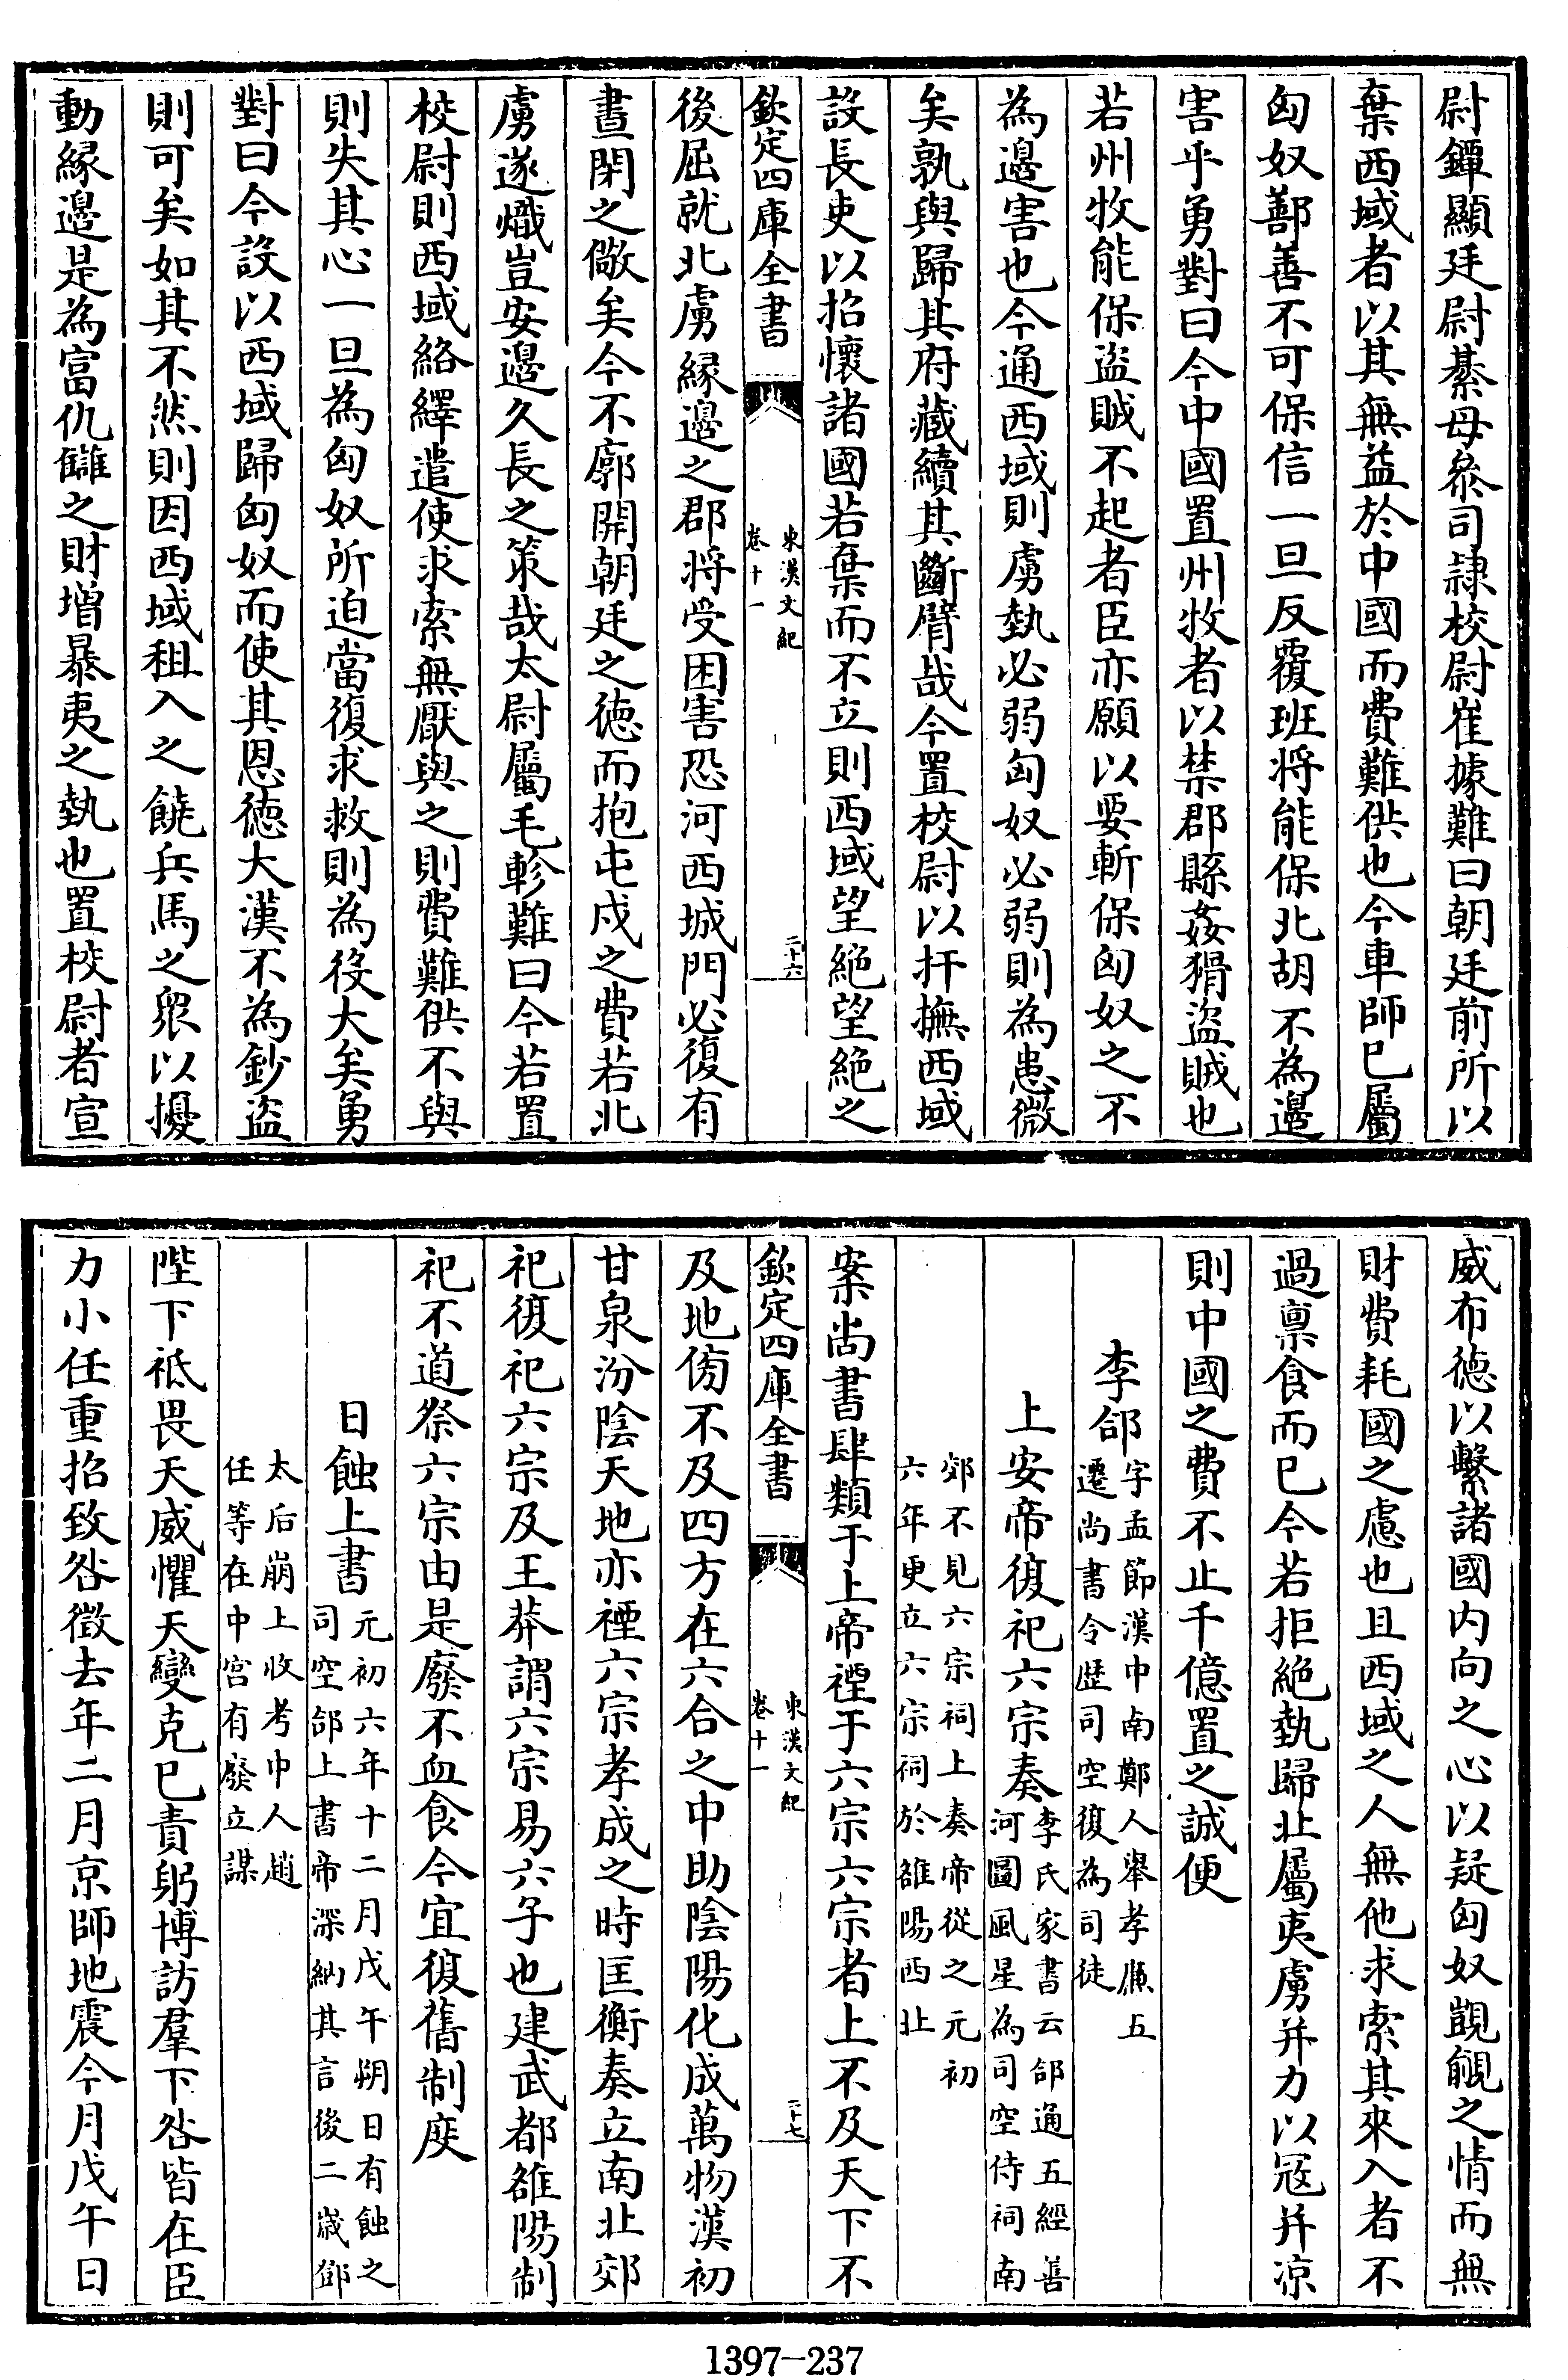 尉鐔顯廷尉綦母參司隷校尉崔據難曰朝廷前所以
棄西域者以其無益於中國而費難供也今車師已屬
匈奴鄯善不可保信一旦反覆班將能保北胡不為邊
害乎勇對曰今中國置州牧者以禁郡縣姦猾盜賊也
若州牧能保盜賊不起者臣亦願以要斬保匈奴之不
為邊害也今通西域則虜埶必弱匈奴必弱則為患微
矣孰與歸其府藏續其斷臂哉今置校尉以扞撫西域
設長吏以招懷諸國若棄而不立則西域望絶望絶之
欽定四庫全書
東漢文紀
卷十一
二十六
後屈就北虜縁邊之郡將受困害恐河西城門必復有
晝閉之儆矣今不廓開朝廷之徳而抱屯戍之費若北
虜遂熾豈安邊久長之策哉太尉屬毛軫難曰今若置
校尉則西域絡繹遣使求索無厭與之則費難供不與
則失其心一旦為匈奴所迫當復求救則為役大矣勇
對曰今設以西域歸匈奴而使其恩徳大漢不為鈔盜
則可矣如其不然則因西域租入之饒兵馬之衆以擾
動縁邊是為富仇讎之財増暴夷之埶也置校尉者宣
威布徳以繫諸國内向之心以疑匈奴覬覦之情而無
財費耗國之慮也且西域之人無他求索其來入者不
過禀食而已今若拒絶埶歸北屬夷虜并力以冦并凉
則中國之費不止千億置之誠便
李郃字孟節漢中南鄭人舉孝亷五
遷尚書令歴司空復為司徒
上安帝復祀六宗奏李氏家書云郃通五經善
河圖風星為司空侍祠南
郊不見六宗祠上奏帝從之元初
六年更立六宗祠於雒陽西北
案尚書肆類于上帝禋于六宗六宗者上不及天下不
欽定四庫全書
東漢文紀
卷十一
二十七
及地傍不及四方在六合之中助陰陽化成萬物漢初
甘泉汾陰天地亦禋六宗孝成之時匡衡奏立南北郊
祀復祀六宗及王莽謂六宗易六子也建武都雒陽制
祀不道祭六宗由是廢不血食今宜復舊制度
日蝕上書元初六年十二月戊午朔日有蝕之
司空郃上書帝深納其言後二歳鄧
太后崩上收考中人趙
任等在中宫有廢立謀
陛下祗畏天威懼天變克已責躬博訪羣下咎皆在臣
力小任重招致咎徴去年二月京師地震今月戊午日
1397-237